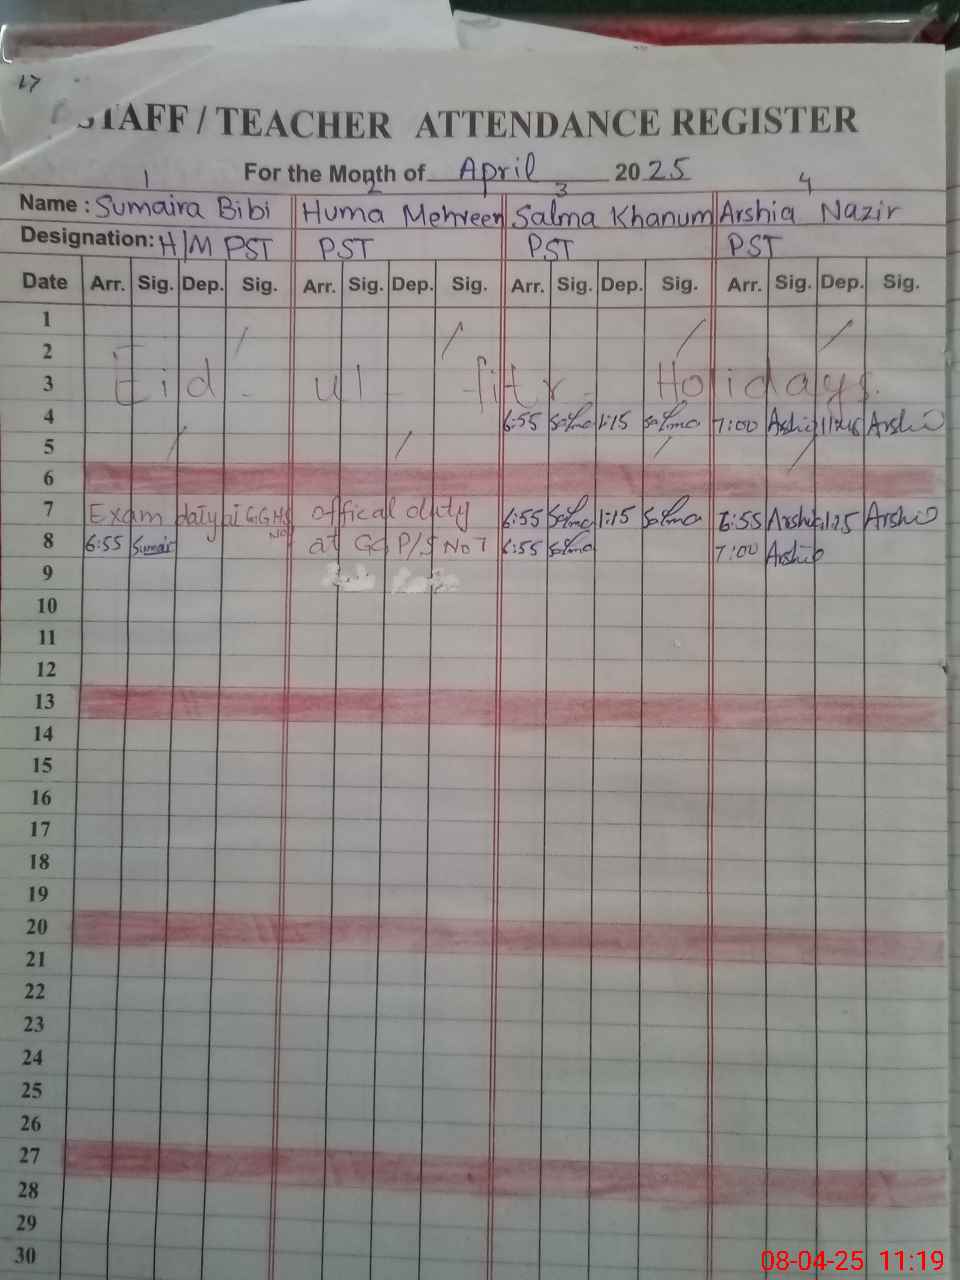 17
STAFF / TEACHER ATTENDANCE REGISTER
For the Month of April 2025
1 2 3 4
Name : Sumaira Bibi Huma Mehreen Salma Khanum Arshia Nazir
Designation: H/M PST PST PST PST
Date Arr. Sig. Dep. Sig. Arr. Sig. Dep. Sig. Arr. Sig. Dep. Sig. Arr. Sig. Dep. Sig.
1
2
3 Eid - ul - fitr - Holidays.
4 6:55 Salma 1:15 Salma 7:00 Arshia Arshia
5
6
7 Exam duty GGHS No offical duty 6:55 Salma 1:15 Salma 6:55 Arshia 1:25 Arshia
8 6:55 Sumair at GG P/S No 7 6:55 Salma 7:00 Arshia
9
10
11
12
13
14
15
16
17
18
19
20
21
22
23
24
25
26
27
28
29
30
08-04-25 11:19